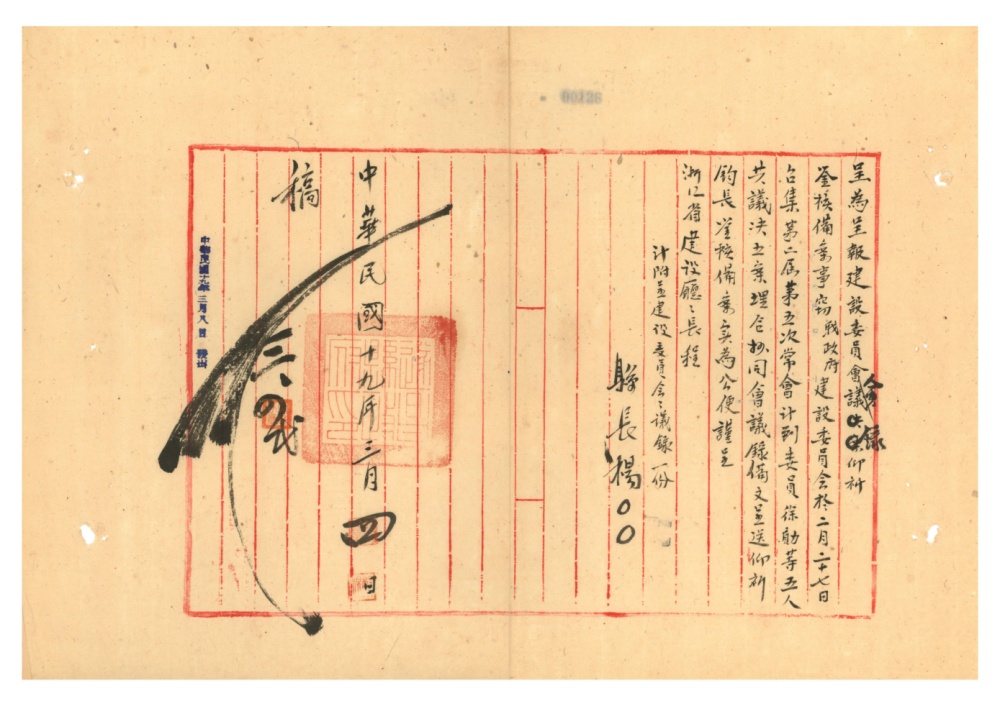 00126
呈為呈報建設委員會議錄仰祈
鉴核備案事竊職政府建設委員会於二月二十七日
召集第二屆第五次常會計到委員徐勣等五人
共議决五案理合抄同會議錄備文呈送仰祈
鈞長鉴核備案实為公便謹呈
浙江省建设廳廳長程
計附呈建设委員会會議錄一份
縣長楊〇〇
中華民國十九年三月四日
稿
三、四
中華民國十九年三月八日 發出